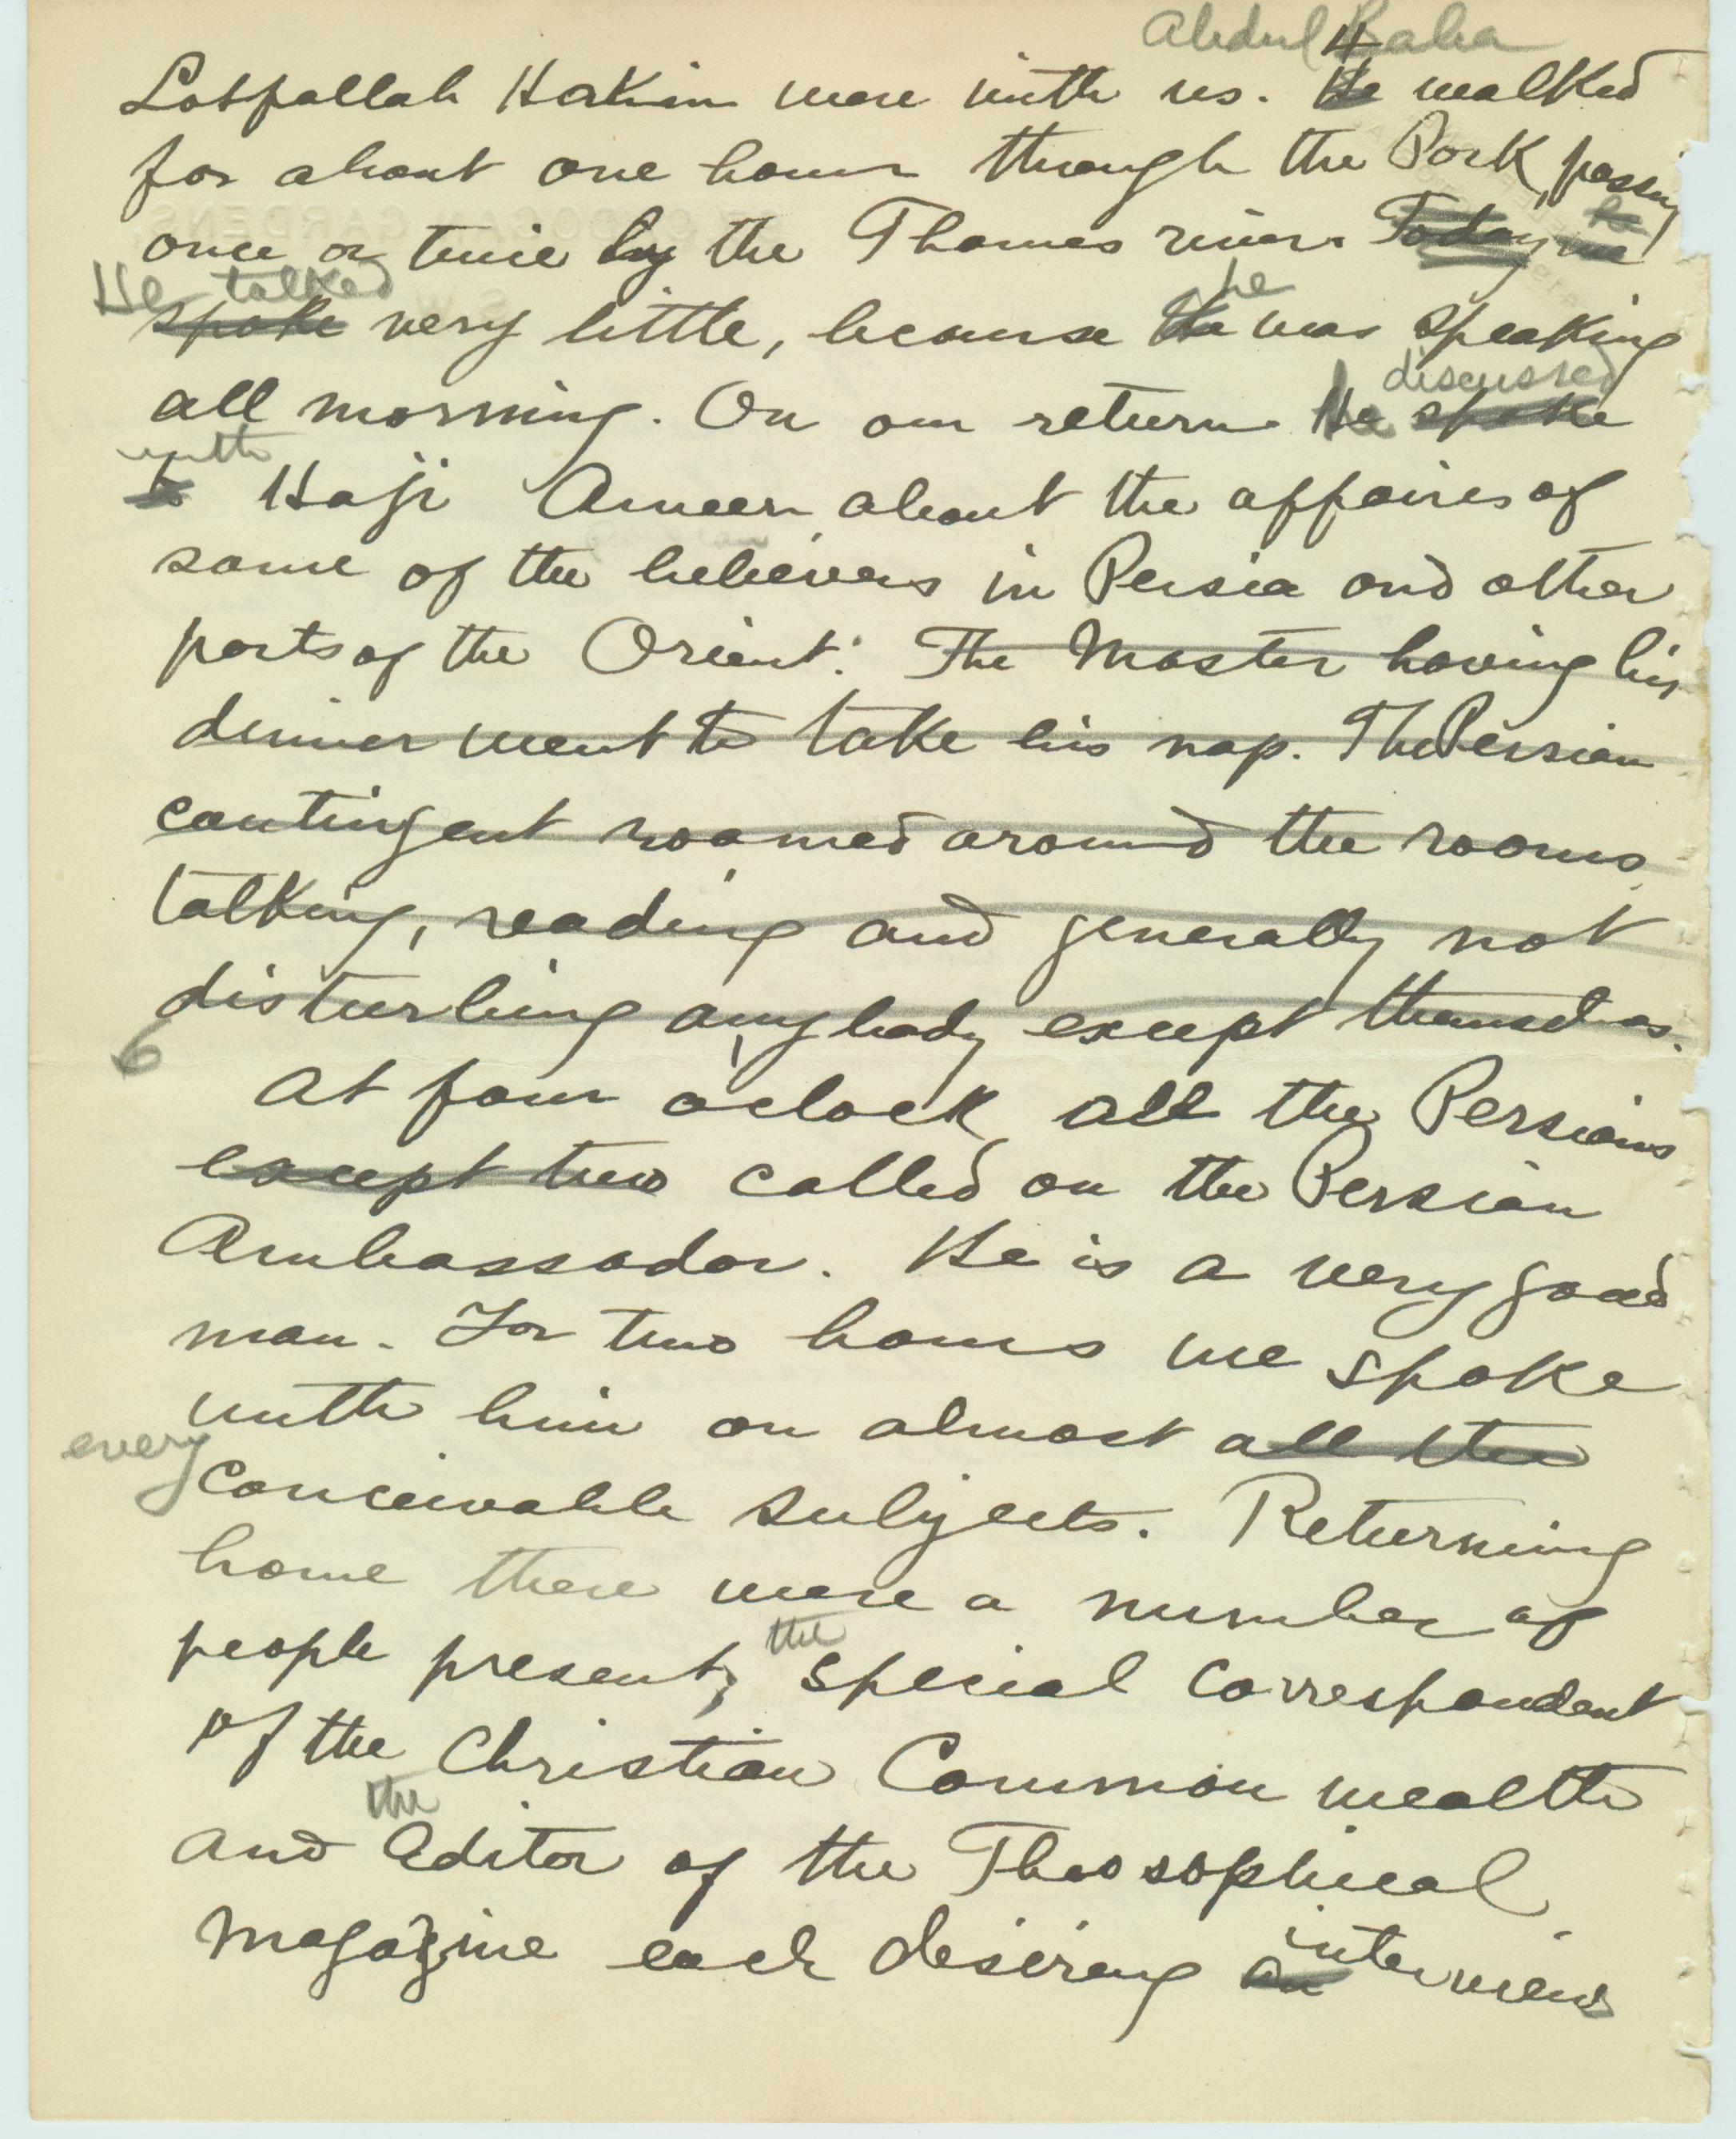 Abdul Baha
4
Lotfallah Hakim were with us. He walked
for about one hour through the Park, passing
once or twice by the Thames river. Today he
He talked
spoke very little, because he was speaking
discussed
all morning. On our return he spoke
with
to Haji Ameen about the affaires of
some of the believers in Persia and other
parts of the Orient. The Master having his
dinner went to take his nap. The Persian
contingent roamed around the rooms
talking, reading and generally not
disturbing anybody except themselves.
At four o'clock all the Persians
except two called on the Persian
Ambassador. He is a very good
man. For two hours we spoke
with him on almost all the
every
conceivable subjects. Returning
home there were a number of
people present; the special correspondent
of the Christian Common wealth
and the Editor of the Theosophical
Magazine each desiring an interview